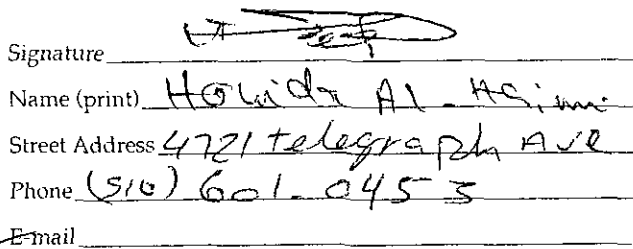 Signature
Name (print) Howida Al-
Street Address 4721 telegraph Ave
Phone (510) 601-0453
E-mail